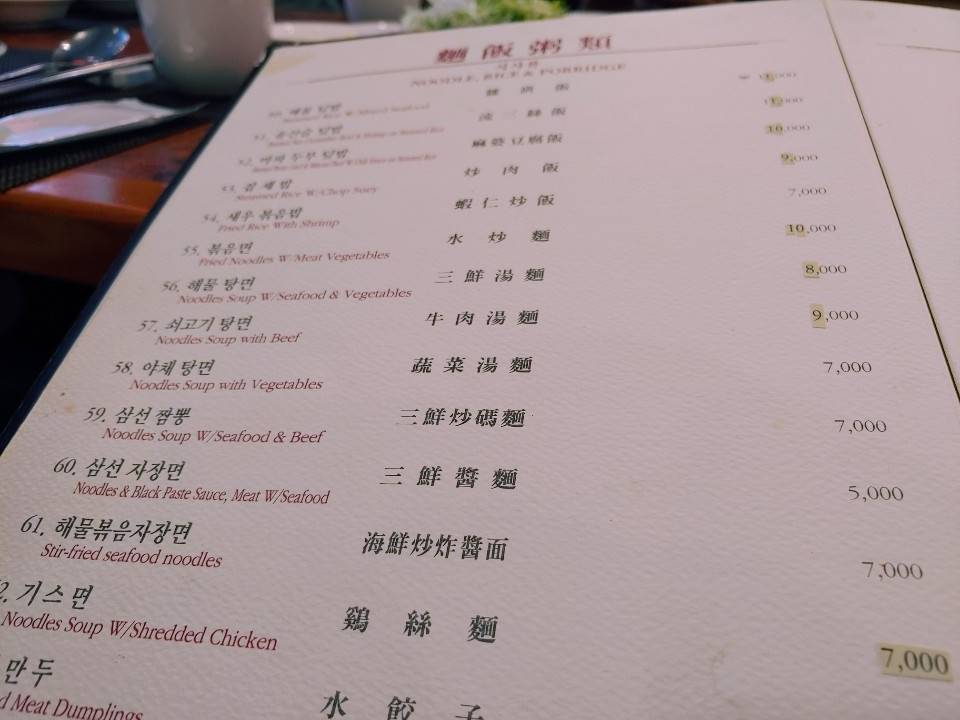 麵飯粥類
식사류
NOODLE, RICE & PORRIDGE
50. 해물 덮밥
飯
51. 유산슬 덮밥
流三絲飯
52. 마파 두부 덮밥 麻婆豆腐飯 10,000
53. 잡채밥 炒肉飯 9,000
Steamed Rice W/Chop Suey
54. 새우 볶음밥 蝦仁炒飯 7,000
Fried Rice With Shrimp
55. 볶음면 水炒麵 10,000
Fried Noodles W/Meat Vegetables
56. 해물 탕면 三鮮湯麵 8,000
Noodles Soup W/Seafood & Vegetables
57. 쇠고기 탕면 牛肉湯麵 9,000
Noodles Soup with Beef
58. 야채 탕면 蔬菜湯麵 7,000
Noodles Soup with Vegetables
59. 삼선 짬뽕 三鮮炒碼麵 7,000
Noodles Soup W/Seafood & Beef
60. 삼선 자장면 三鮮醬麵 5,000
Noodles & Black Paste Sauce, Meat W/Seafood
61. 해물볶음자장면 海鮮炒炸醬面 7,000
Stir-fried seafood noodles
2. 기스면 鷄絲麵 7,000
Noodles Soup W/Shredded Chicken
만두 水餃子
d Meat Dumplings